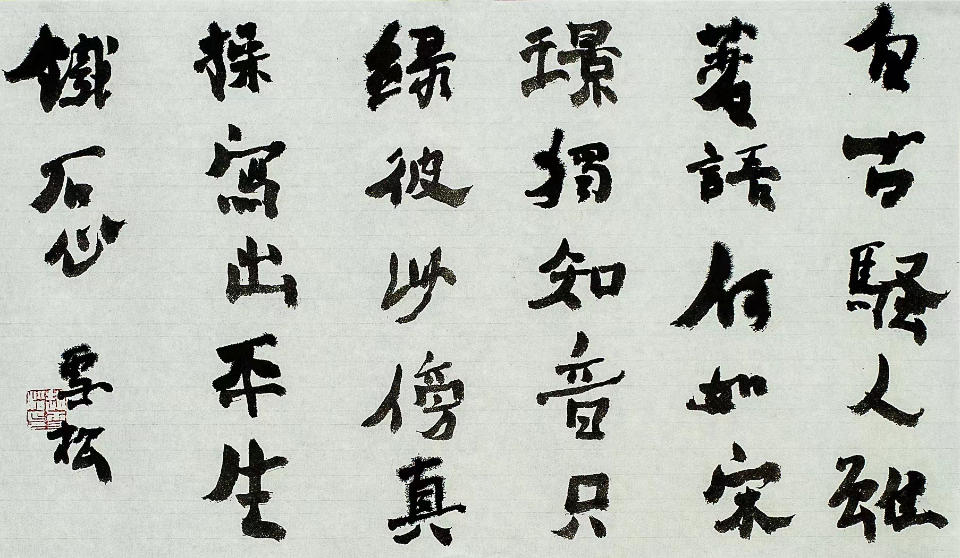 自古騷人雖
著語何如宋
璟獨知音只
緣彼此傍真
操寫出平生
鐵石心
雪松